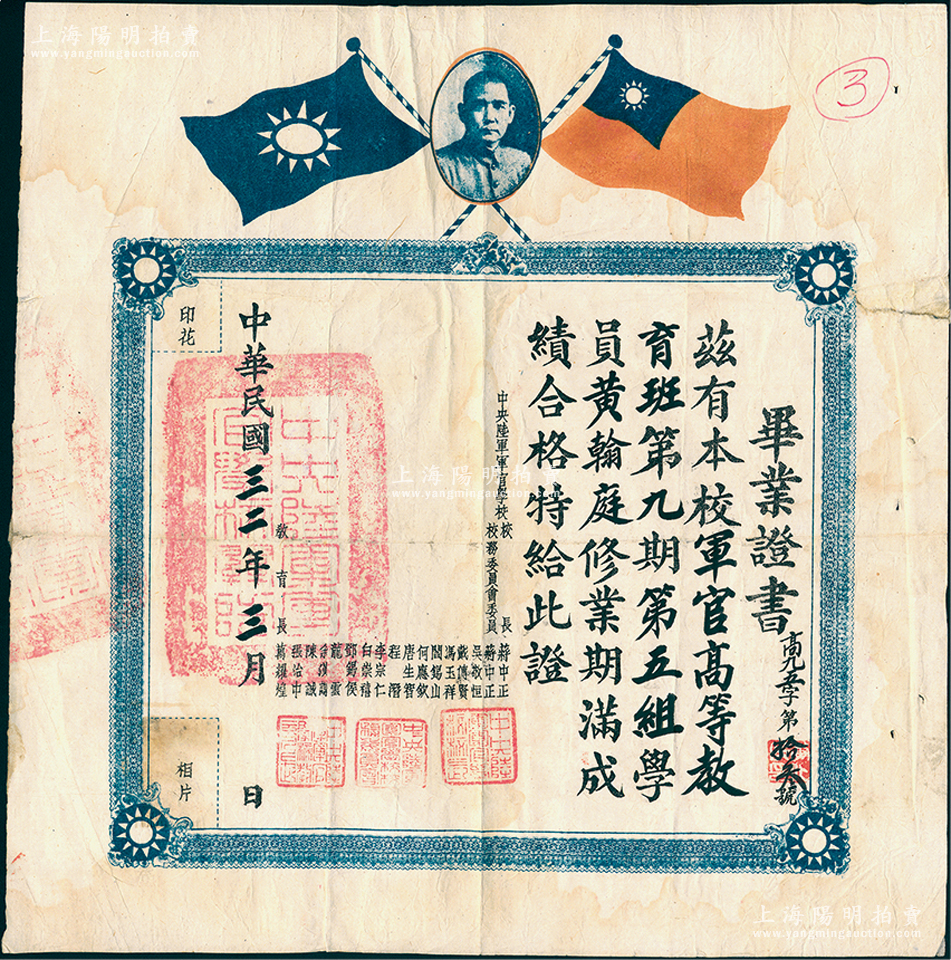 上海陽明拍賣
www.yangmingauction.com
3
畢業證書
高九五字第拾叁號
茲有本校軍官高等教
育班第九期第五組學
員黃翰庭修業期滿成
績合格特給此證
中央陸軍軍官學校校長 蔣中正
校務委員會委員 蔣中正
吳敬恒
戴傳賢
馮玉祥
閻錫山
何應欽
唐生智
程潛
李宗仁
白崇禧
鄧錫侯
龍雲
陳誠
張治中
教育長 萬耀煌
中華民國三二年三月 日
印花
相片
上海陽明拍賣
www.yangmingauction.com
上海陽明拍賣
www.yangmingauction.com